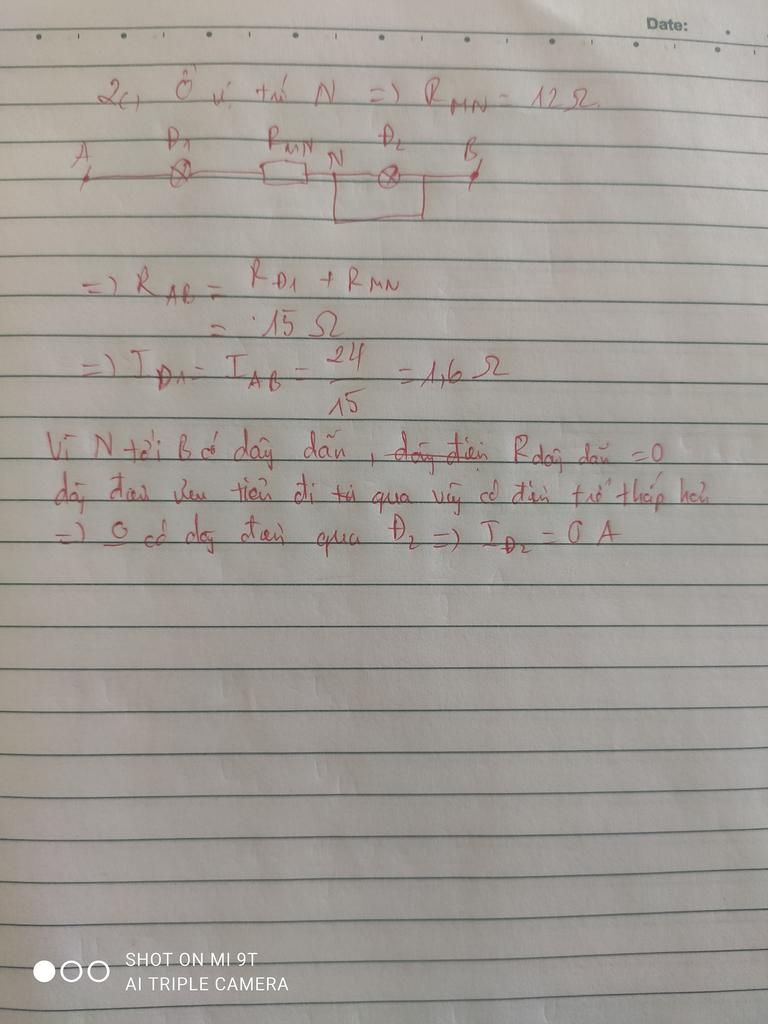 Date:
2c, Ở vị trí N => R_MN = 12 Ω
A Đ1 R_MN N Đ2 B
=> R_AB = R_Đ1 + R_MN
= 15 Ω
=> I_Đ1 = I_AB = 24/15 = 1,6 Ω
Vì N tới B có dây dẫn, dòng điện R dây dẫn = 0
dòng điện ưu tiên đi qua dây có điện trở thấp hơn
=> 0 có dòng điện qua Đ2 => I_Đ2 = 0 A
SHOT ON MI 9T
AI TRIPLE CAMERA